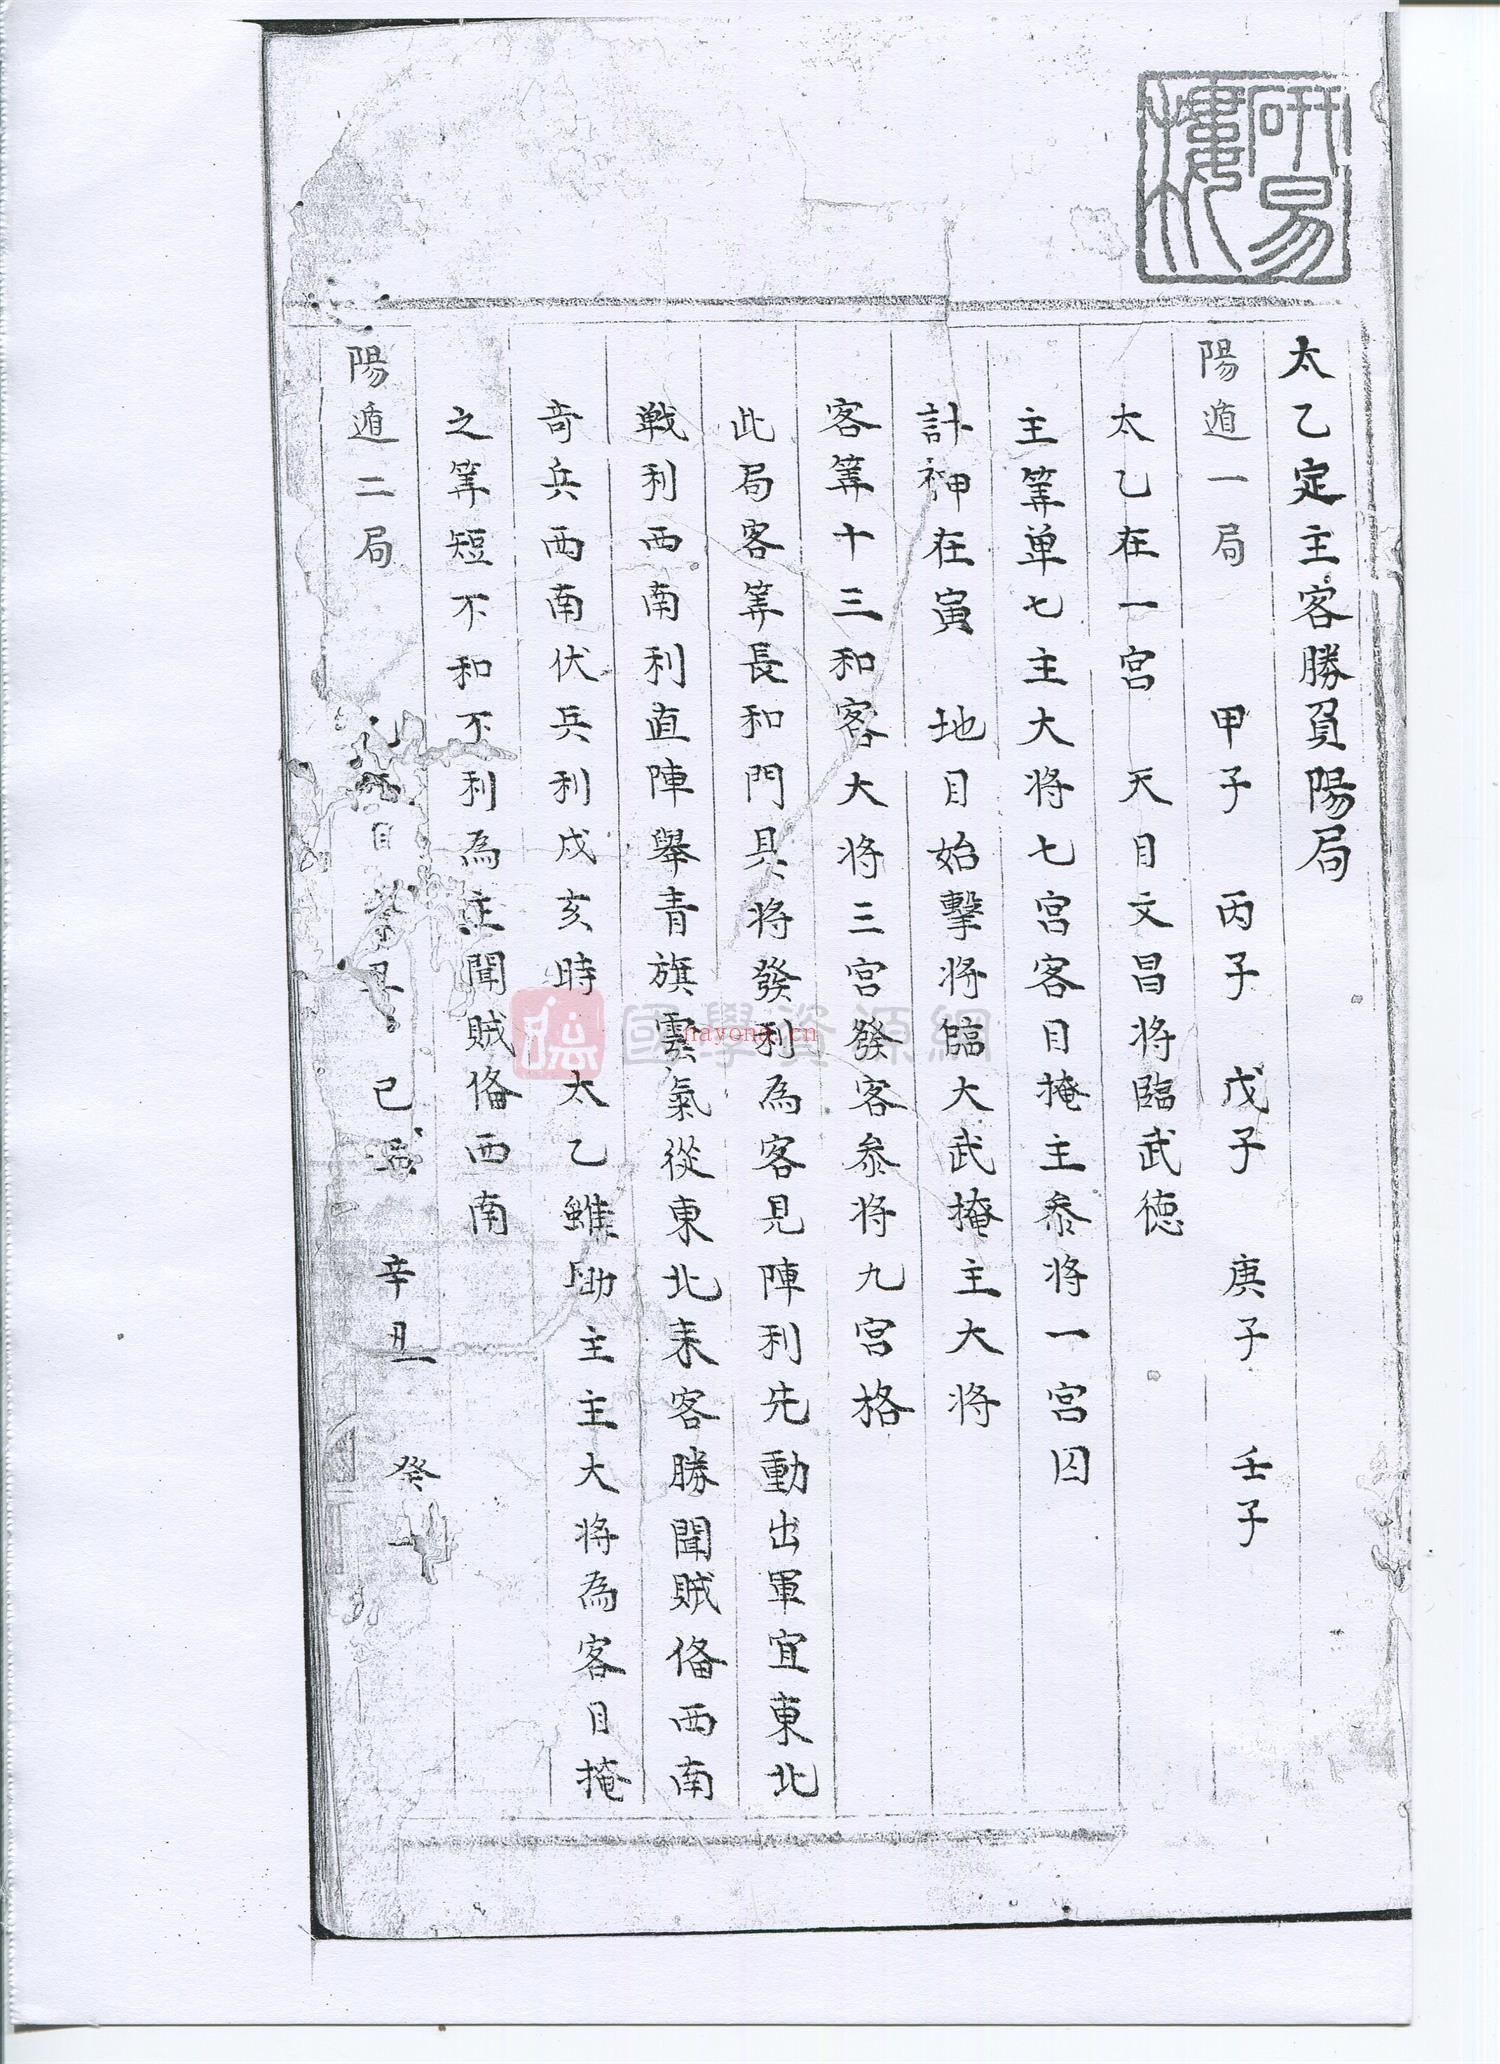 研易樓
太乙定主客勝負陽局
陽遁一局 甲子 丙子 戊子 庚子 壬子
太乙在一宮 天目文昌將臨武德
主筭单七主大将七宮客目掩主叅将一宮囚
計神在寅 地目始擊將臨大武掩主大将
客筭十三和客大将三宮發客叅将九宮格
此局客筭長和門具将發利為客見陣利先動出軍宜東北
戦利西南利直陣舉青旗雲氣從東北来客勝聞賊俻西南
竒兵西南伏兵利戌亥時 太乙雖助主主大将為客目掩
之筭短不和不利為主聞賊俻西南
陽遁二局 己 辛丑 癸
國學資源網
nayona.cn